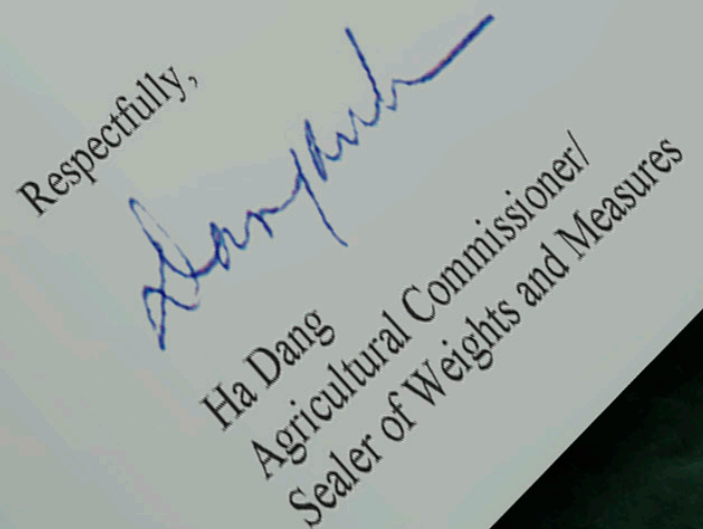 Respectfully,
Ha Dang
Agricultural Commissioner/
Sealer of Weights and Measures